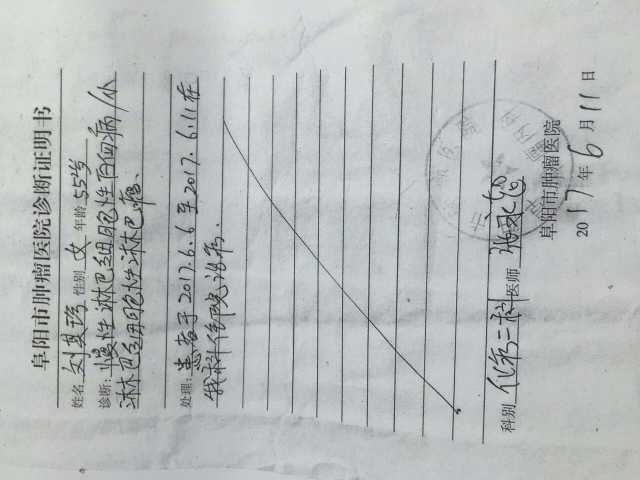 阜阳市肿瘤医院诊断证明书
姓名 刘其玲 性别 女 年龄 55岁
诊断: 慢性淋巴细胞性白血病/小
淋巴细胞性淋巴瘤、
处理: 患者于2017.6.6至2017.6.11在
我科住院治疗.
科别 化疗二科 医师
阜阳市肿瘤医院
2017年6月11日